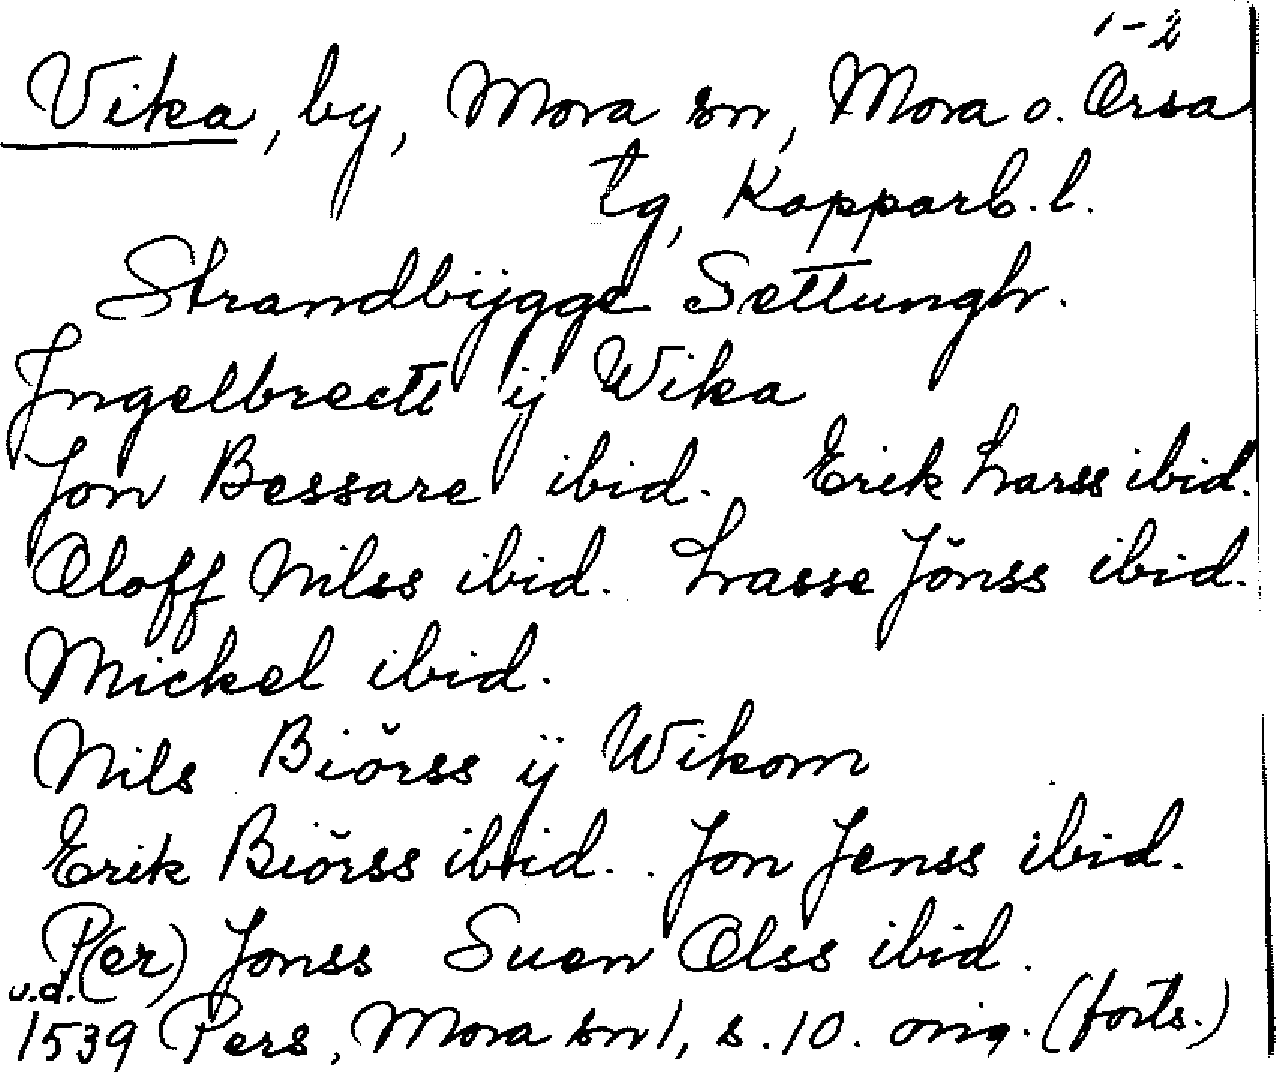 1-2
Vika, by, Mora sn, Mora o. Orsa
tg, Kopparb. l.
Strandbÿgge Settungh.
Jngelbrectt ÿ Wika
Jon Bessare ibid. Erik Larss ibid.
Oloff Nilss ibid. Lasse Jönss ibid.
Mickel ibid.
Nils Biörss ÿ Wikom
Erik Biörss ibid. Jon Jenss ibid.
P(er) Jonss Suen Olss ibid.
u.d.
1539 Pers, Mora sn 1, s. 10. orig. (forts.)